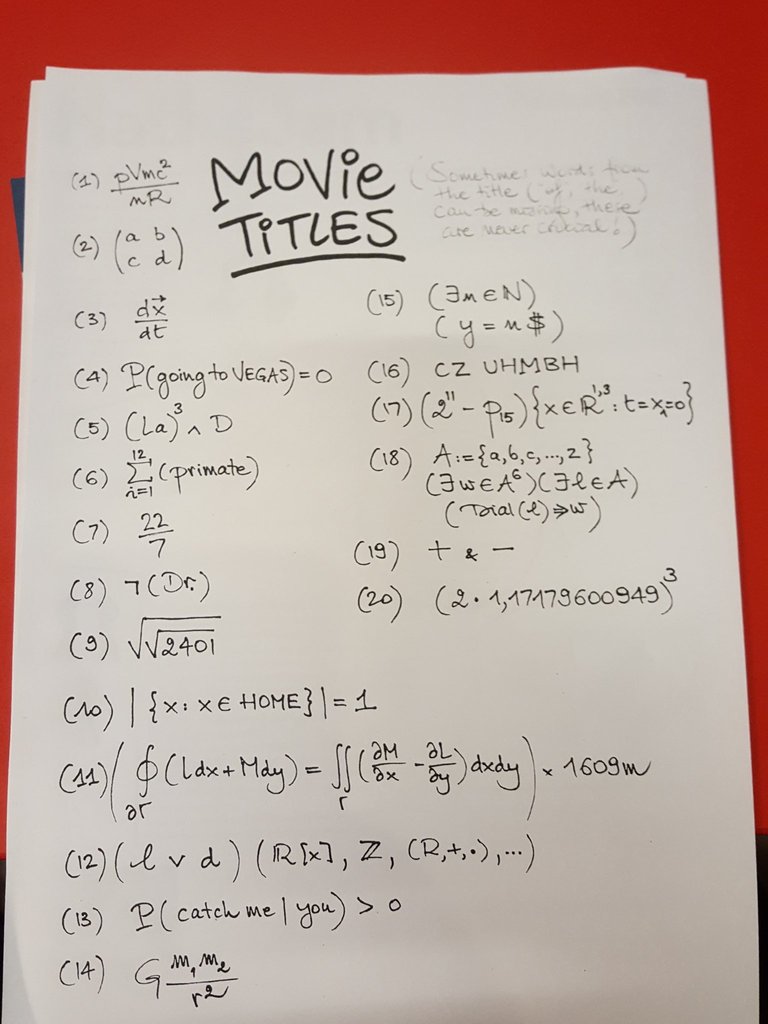 MOVIE
TITLES
(Sometimes words from
the title (of, the, )
can be missing, these
are never crucial!)
(1) pVmc²/nR
(2) (a b
c d)
(3) dx⃗/dt
(4) P(going to VEGAS)=0
(5) (La)³ ∧ D
(6) ∑_{i=1}^{12} (primate)
(7) 22/7
(8) ¬(Dr.)
(9) √√2401
(10) |{x: x∈HOME}|=1
(11) (∮_{∂Γ} (Ldx+Mdy) = ∬_Γ (∂M/∂x - ∂L/∂y) dxdy) × 1609m
(12) (l ∨ d) (R[x], Z, (R,+,·),...)
(13) P(catch me | you) > 0
(14) G m₁m₂/r²
(15) (∃n∈N)
(y = n$)
(16) CZ UHMBH
(17) (2¹¹ - p₁₅){x∈R^{1,3}: t=x₁=0}
(18) A:={a,b,c,...,z}
(∃w∈A⁶)(∃l∈A)
(Dial(l)⇒w)
(19) + & -
(20) (2·1,17179600949)³